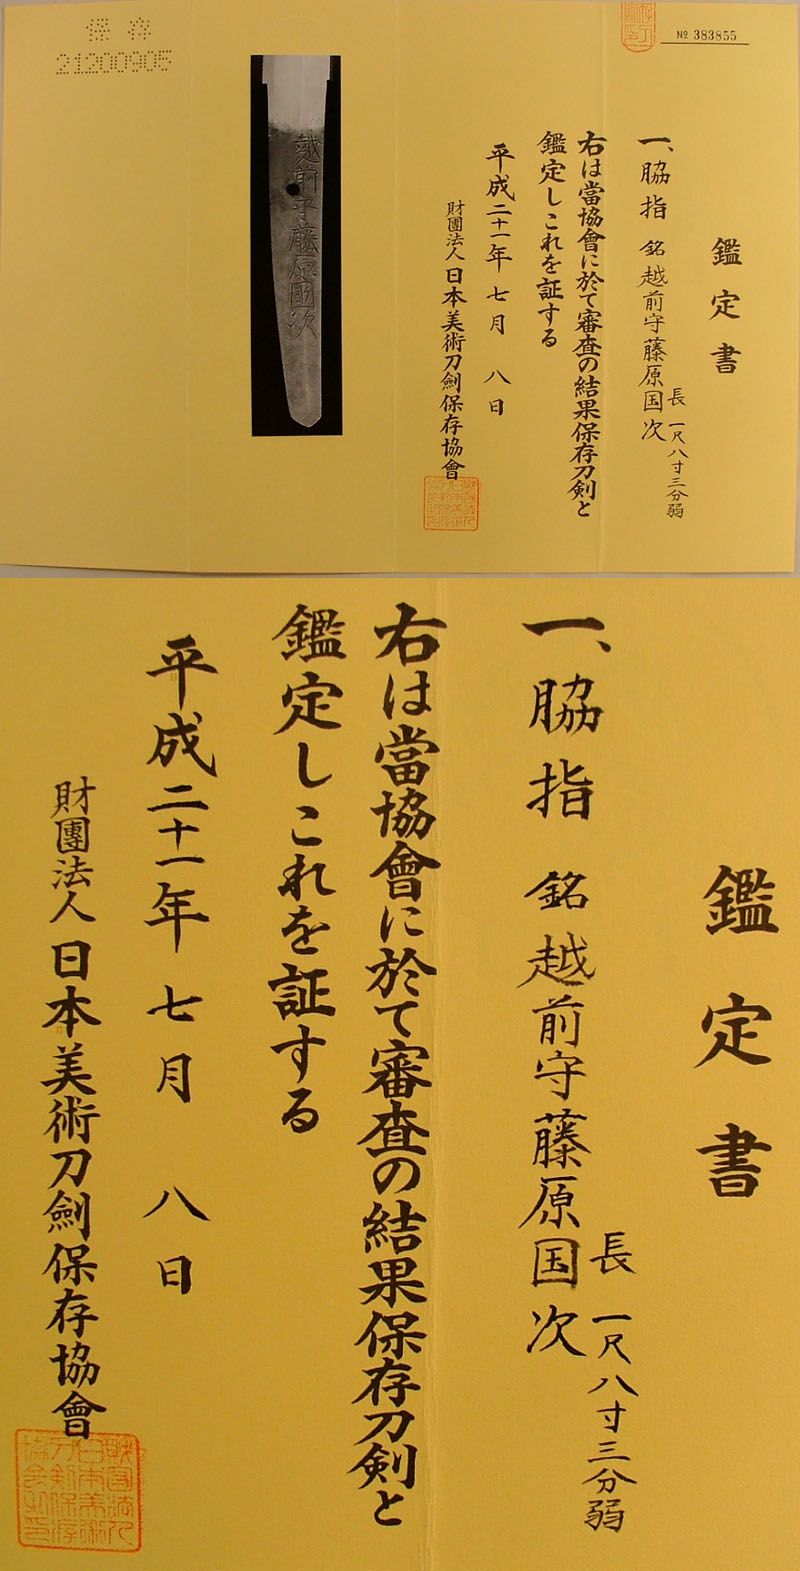 保存
21200905
越前守藤原國次
№ 383855
鑑定書
一、脇指 銘 越前守藤原国次
長 一尺八寸三分弱
右は當協會に於て審査の結果保存刀剣と
鑑定しこれを証する
平成二十一年 七月 八日
財團法人 日本美術刀劍保存協會
鑑定書
一、脇指 銘 越前守藤原国次
長 一尺八寸三分弱
右は當協會に於て審査の結果保存刀剣と
鑑定しこれを証する
平成二十一年 七月 八日
財團法人 日本美術刀劍保存協會